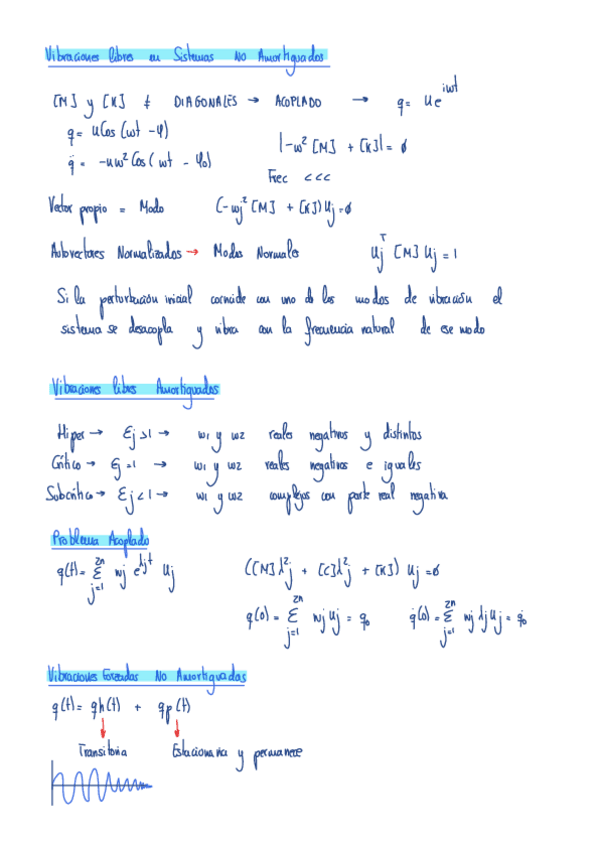 Vibraciones libres en Sistemas No Amortiguados
[M] y [K] ≠ DIAGONALES → ACOPLADO → q = u e^iwt
q = u Cos (wt - φ)
|-w² [M] + [K]| = ø
q̈ = -uw² Cos (wt - φ0)
Frec <<<
Vector propio = Modo (-wj² [M] + [K]) Uj = ø
Autovectores Normalizados → Modos Normales Uj^T [M] Uj = 1
Si la perturbación inicial coincide con uno de los modos de vibración el
sistema se desacopla y vibra con la frecuencia natural de ese modo
Vibraciones libres Amortiguadas
Hiper → Ej > 1 → w1 y w2 reales negativos y distintos
Crítico → Ej = 1 → w1 y w2 reales negativos e iguales
Subcrítico → Ej < 1 → w1 y w2 complejos con parte real negativa
Problema Acoplado
q(t) = Σ_{j=1}^{2n} wj e^{λjt} Uj ([M]λ²j + [C]λ²j + [K]) Uj = ø
q(0) = Σ_{j=1}^{2n} wj Uj = q0 q̇(0) = Σ_{j=1}^{2n} wj λj Uj = q̇0
Vibraciones Forzadas No Amortiguadas
q(t) = qh(t) + qp(t)
Transitoria Estacionaria y permanece